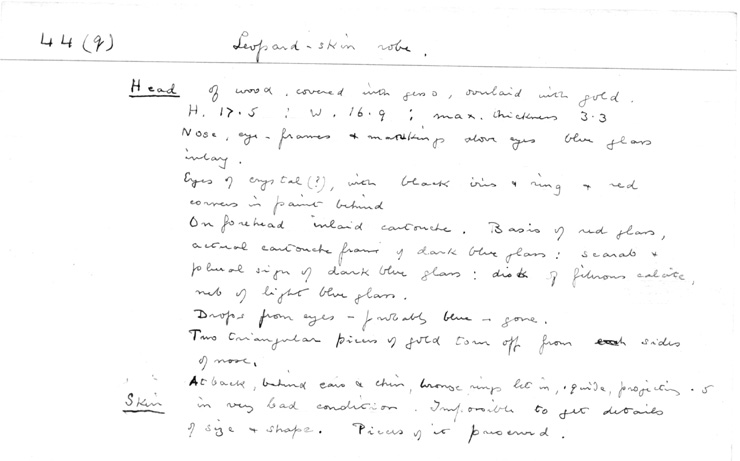 44(q) Leopard-skin robe.
Head of wood, covered with gesso, overlaid with gold.
H. 17.5 ; W. 16.9 ; max. thickness 3.3
Nose, eye-frames & markings above eyes blue glass
inlay.
Eyes of crystal(?), with black iris & ring & red
corners in paint behind
On forehead inlaid cartouche. Basis of red glass,
actual cartouche frame of dark blue glass: scarab &
plural sign of dark blue glass: disk of fibrous calcite,
neb of light blue glass.
Drops from eyes - probably blue - gone.
Two triangular pieces of gold torn off from sides
of nose.
At back, behind ears & chin, bronze rings let in, projecting .5
Skin in very bad condition. Impossible to get details
of size & shape. Pieces of it preserved.